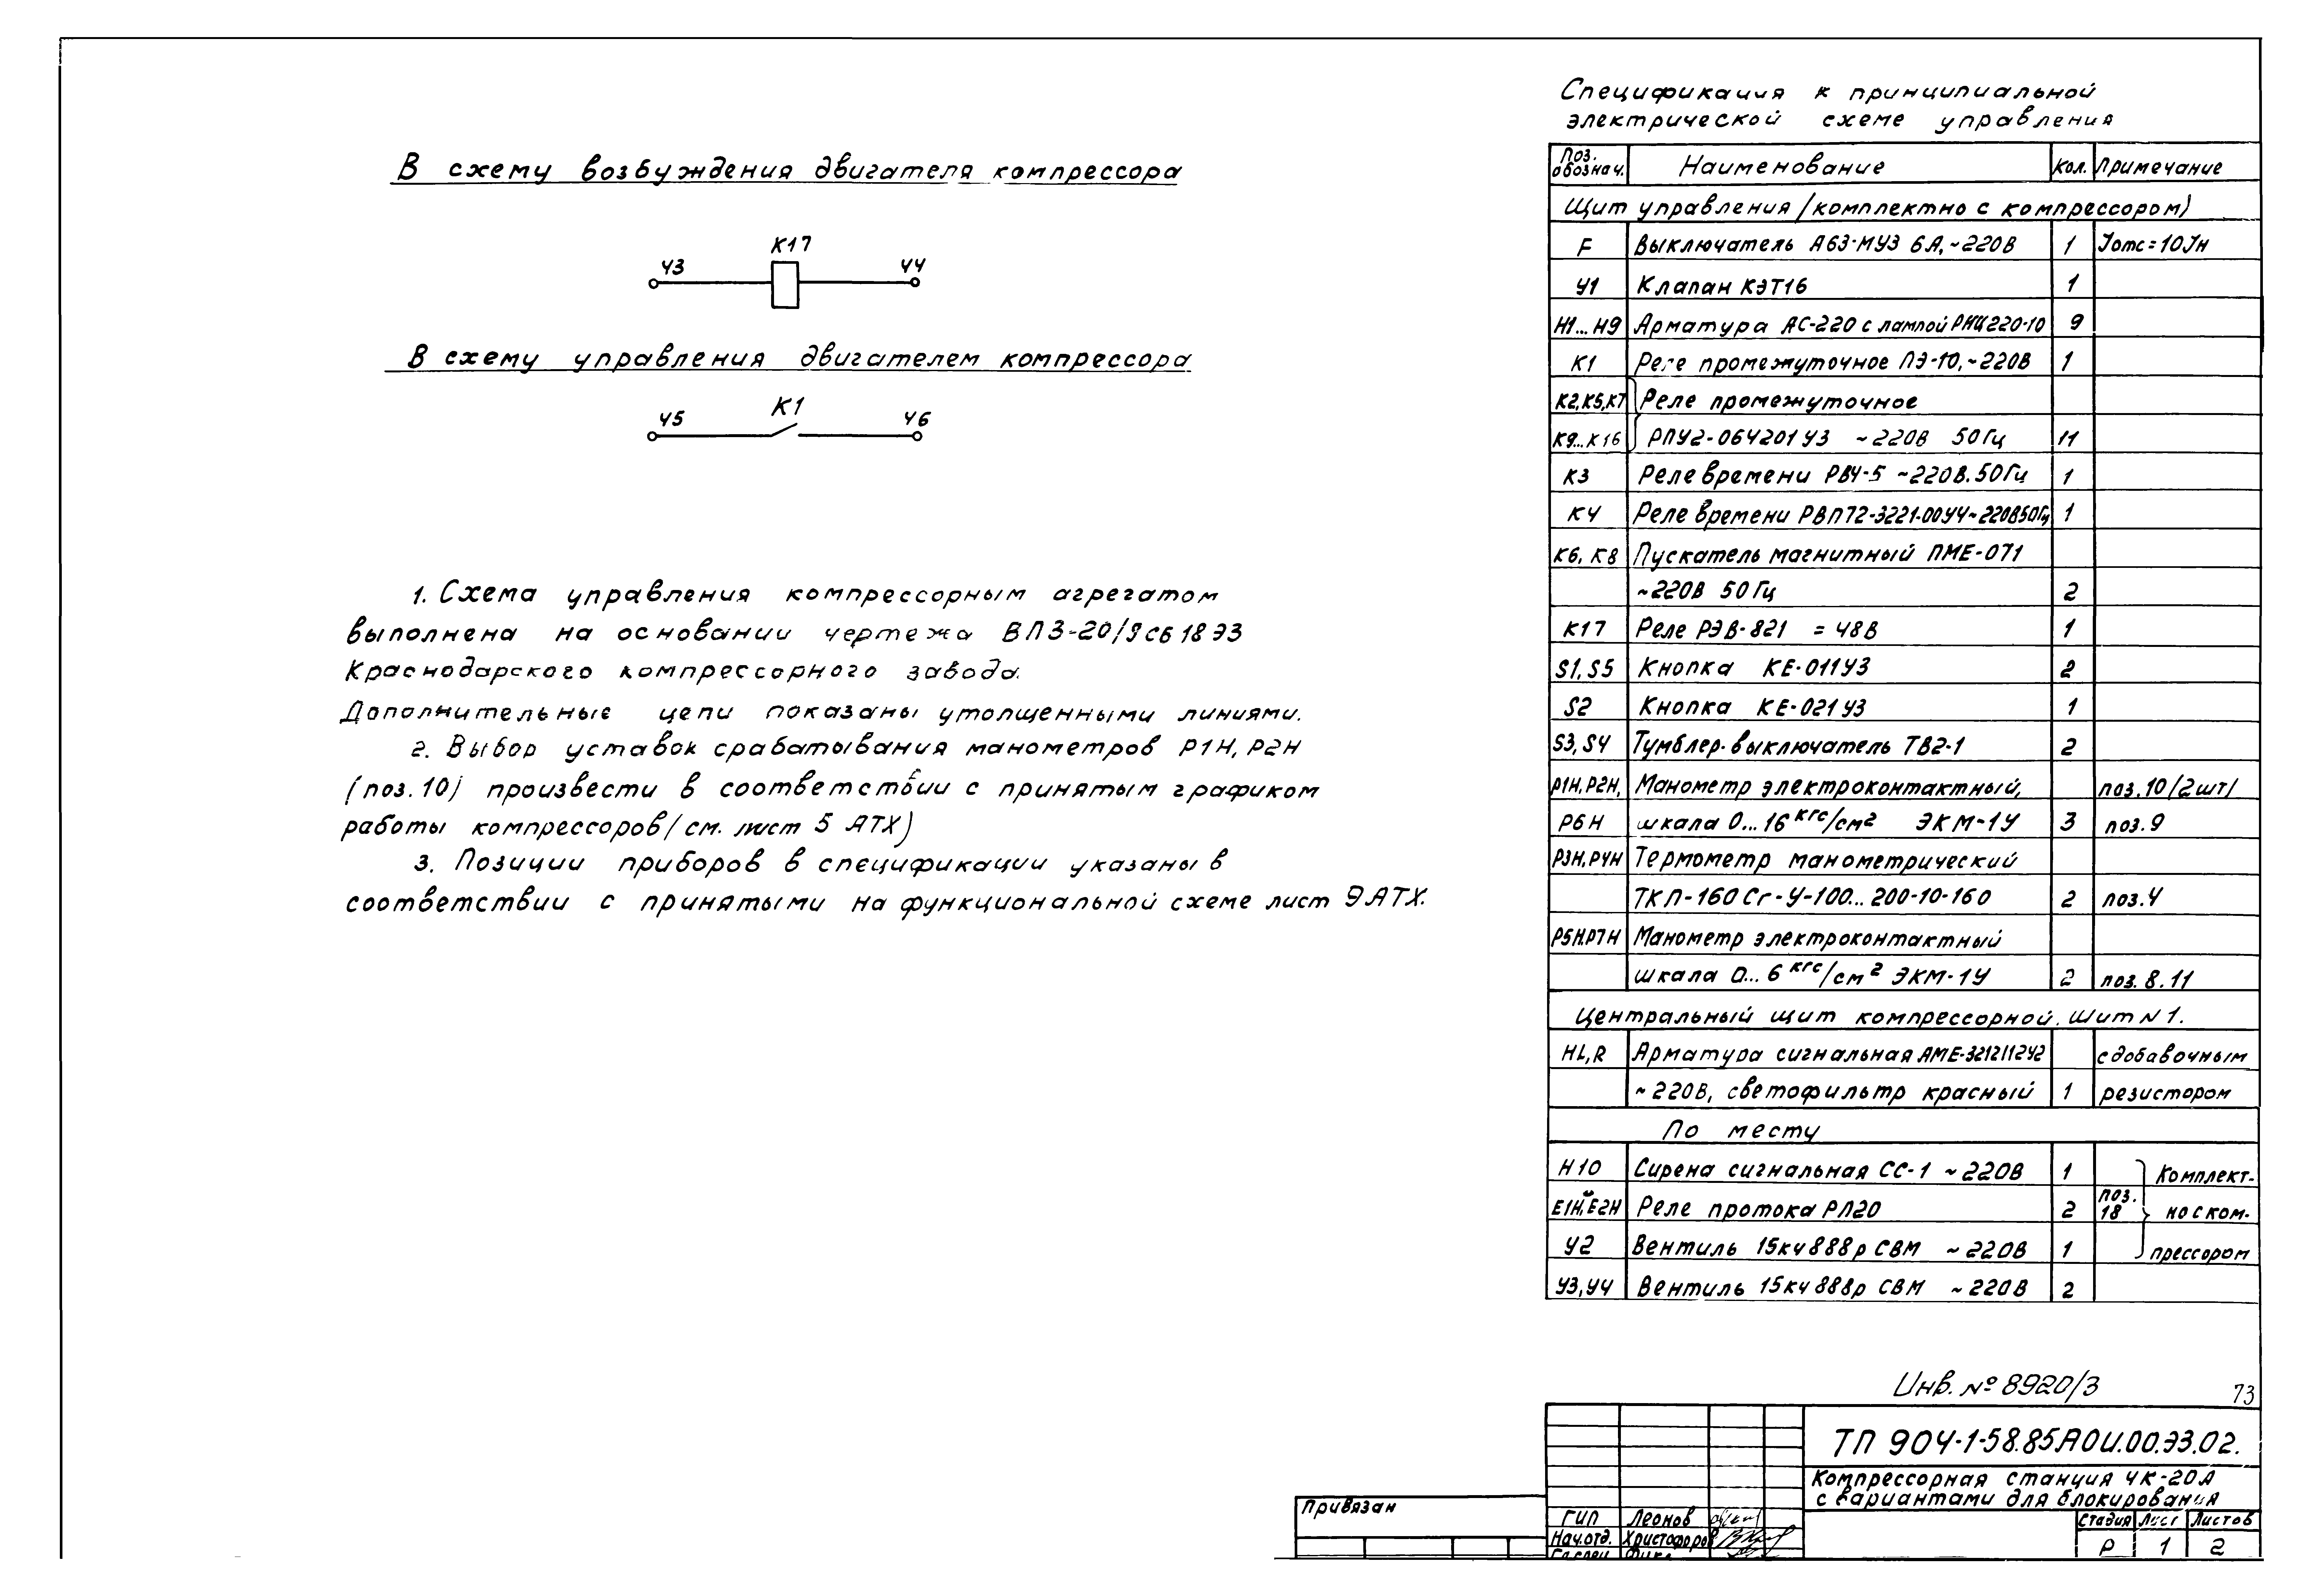 В схему возбуждения двигателя компрессора
К17
43
44
В схему управления двигателем компрессора
К1
45
46
1. Схема управления компрессорным агрегатом
выполнена на основании чертежа ВП3-20/9сб18Э3
Краснодарского компрессорного завода.
Дополнительные цепи показаны утолщенными линиями.
2. Выбор уставок срабатывания манометров Р1Н, Р2Н
(поз.10) произвести в соответствии с принятым графиком
работы компрессоров/см. лист 5 АТХ)
3. Позиции приборов в спецификации указаны в
соответствии с принятыми на функциональной схеме лист 9АТХ.
Спецификация к принципиальной
электрической схеме управления
Поз. обознач. Наименование Кол. Примечание
Щит управления /комплектно с компрессором)
F Выключатель А63-МУ3 6А,~220В 1 Jотс=10Jн
У1 Клапан КЭТ16 1
Н1...Н9 Арматура АС-220 с лампой РНЦ220-10 9
К1 Реле промежуточное ПЭ-10,~220В 1
К2,К5,К7 Реле промежуточное
К9...К16 РПУ2-064201У3 ~220В 50Гц 11
К3 Реле времени РВ4-5 ~220В.50Гц 1
К4 Реле времени РВП72-3221-00У4~220В50Гц 1
К6, К8 Пускатель магнитный ПМЕ-071
~220В 50Гц 2
К17 Реле РЭВ-821 =48В 1
S1,S5 Кнопка КЕ-011У3 2
S2 Кнопка КЕ-021У3 1
S3,S4 Тумблер-выключатель ТВ2-1 2
Р1Н,Р2Н, Манометр электроконтактный, поз.10/2шт/
Р6Н шкала 0...16 кгс/см² ЭКМ-1У 3 поз.9
Р3Н,Р4Н Термометр манометрический
ТКП-160Сг-У-100...200-10-160 2 поз.4
Р5Н,Р7Н Манометр электроконтактный
шкала 0...6 кгс/см² ЭКМ-1У 2 поз.8.11
Центральный щит компрессорной. Щит N1.
НL,R Арматура сигнальная АМЕ-321211242 с добавочным
~220В, светофильтр красный 1 резистором
По месту
Н10 Сирена сигнальная СС-1 ~220В 1 Комплект-
Е1Н,Е2Н Реле протока РП20 2 поз. 18 но с ком-
У2 Вентиль 15кч888р СВМ ~220В 1 прессором
У3,У4 Вентиль 15кч888р СВМ ~220В 2
Инв. № 8920/3
73
ТП 904-1-58.85АОИ.00.Э3.02.
Компрессорная станция 4К-20А
с вариантами для блокирования
Привязан
ГИП Леонов
Нач.отд. Христофоров
Стадия Лист Листов
Р 1 2